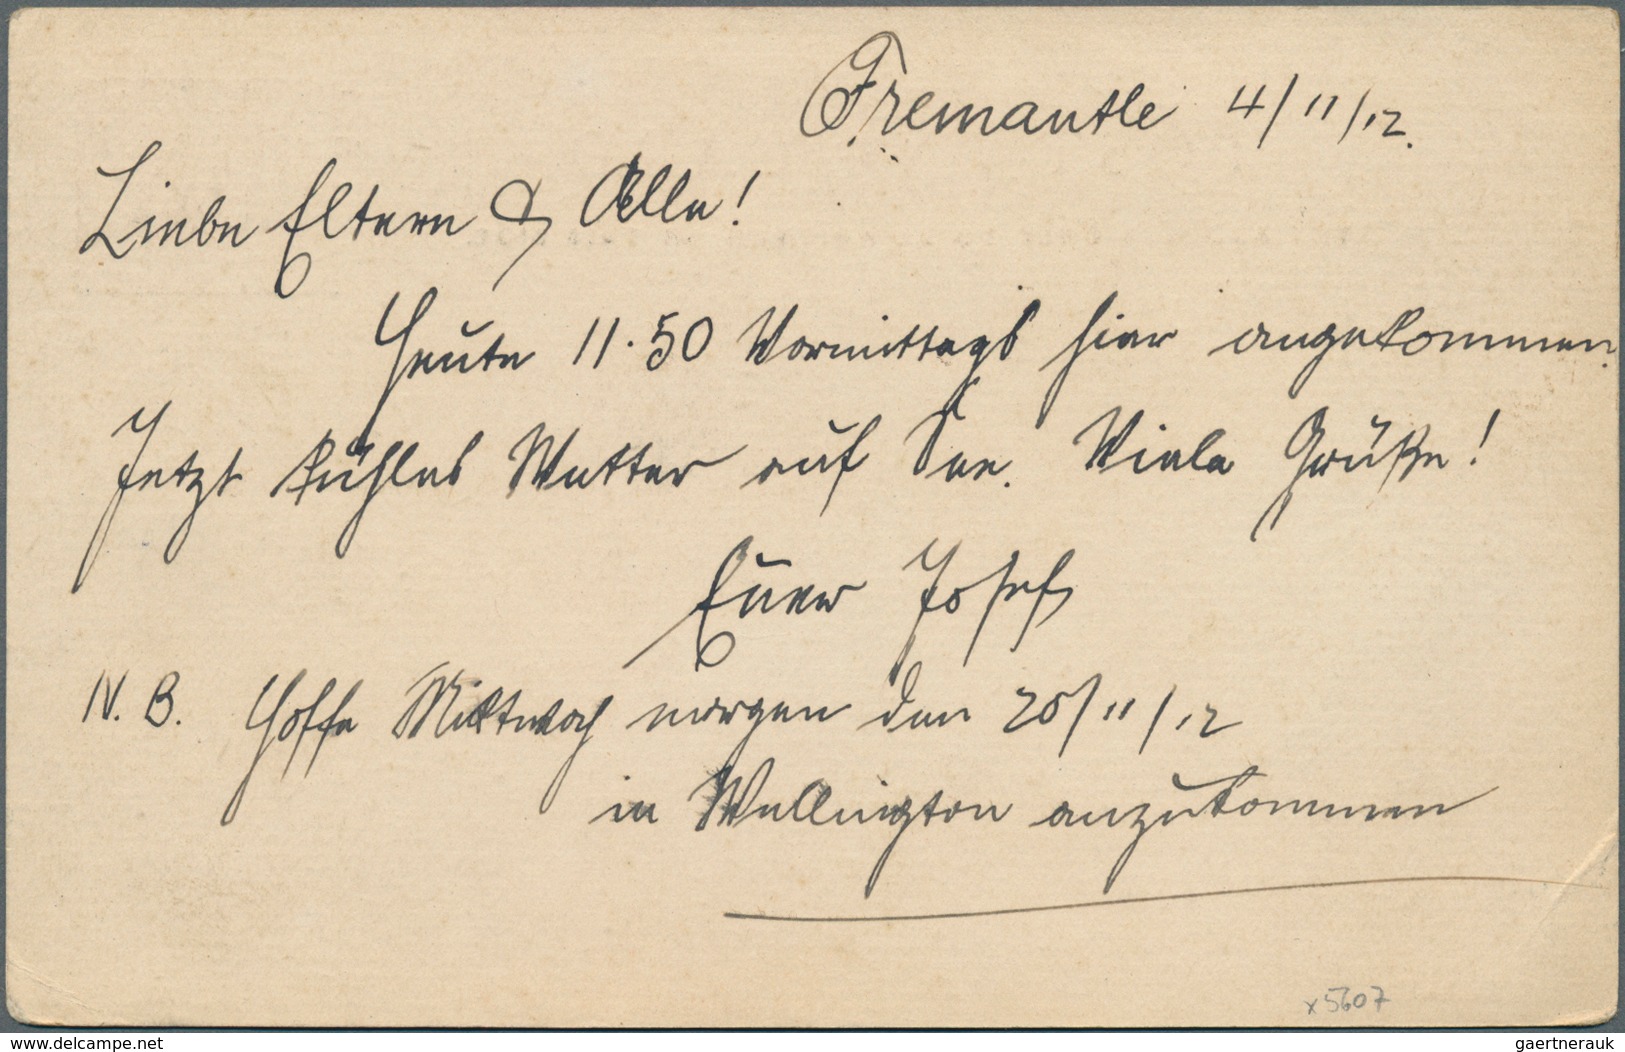 Fremantle 4/11/12.
Liebe Eltern & Alle!
Heute 11.50 Vormittags hier angekommen.
Jetzt kühles Wetter auf See. Viele Grüße!
Euer Josef
N. B. Hoffe Mittwoch morgen den 20/11/12
in Wellington anzukommen
x5607
www.delcampe.net
gaertnerauk